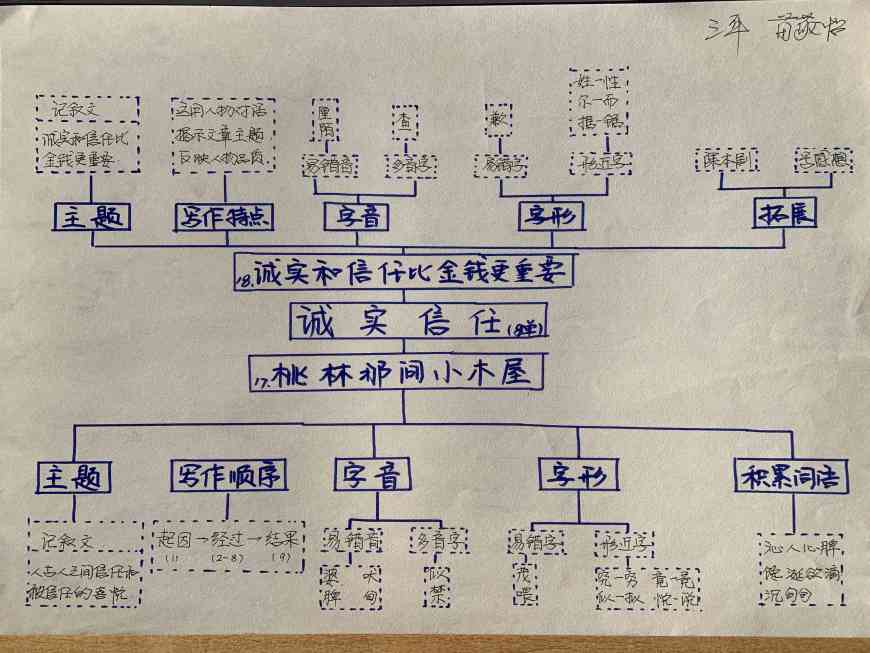 三年 苗敬怡
记叙文
诚实和信任比
金钱更重要
运用人物对话
揭示文章主题
反映人物品质
厘
陌
易错音
查
多音字
歉
易错字
姓一性
尔一而
据一锯
形近字
课本剧
写感想
主题
写作特点
字音
字形
拓展
18.诚实和信任比金钱更重要
诚实信任(8单)
17.桃林那间小木屋
主题
写作顺序
字音
字形
积累词语
记叙文
人与人之间信任和
被信任的喜悦
起因→经过→结果
(1) (2-8) (9)
易错音
婆 吠
脾 甸
多音字
似
禁
易错字
茂
喂
形近字
究一穷 竟一竞
似一拟 悦一说
沁人心脾
馋涎欲滴
沉甸甸